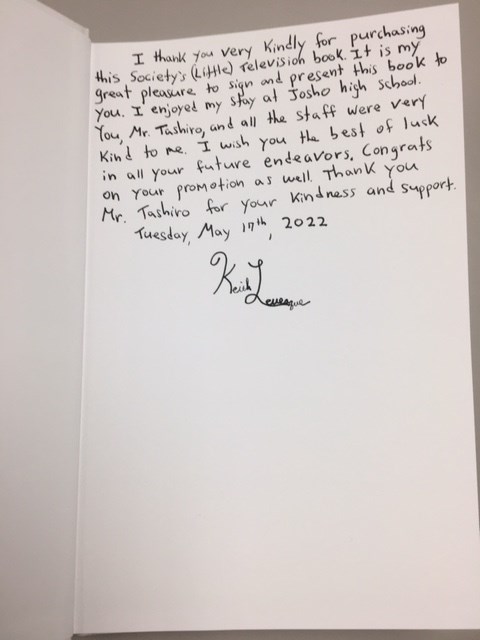 I thank you very kindly for purchasing
this Society's (Little) Television book. It is my
great pleasure to sign and present this book to
you. I enjoyed my stay at Josho high school.
You, Mr. Tashiro, and all the staff were very
kind to me. I wish you the best of luck
in all your future endeavors. Congrats
on your promotion as well. Thank you
Mr. Tashiro for your kindness and support.
Tuesday, May 17th, 2022
Keith Levesque